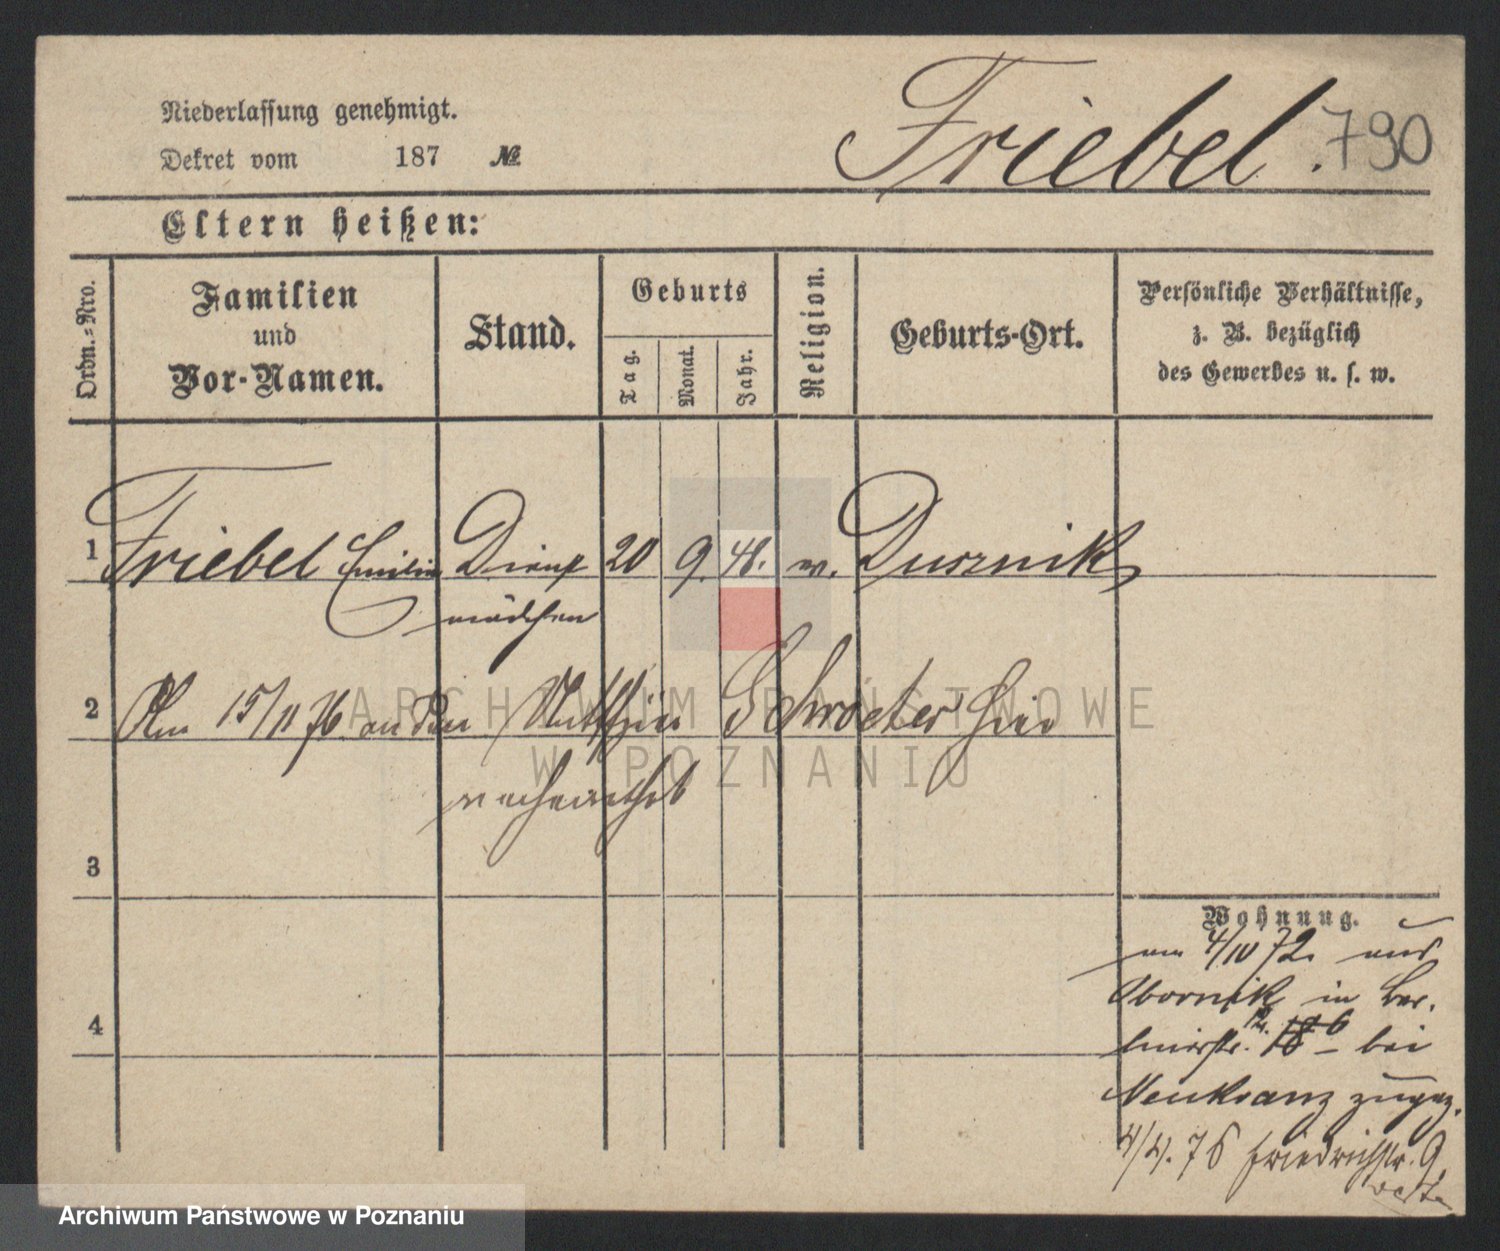 Niederlassung genehmigt.
Dekret vom 187 №
Friebel. 790
Eltern heißen:
Ordn.=Nro.
Familien
und
Vor-Namen.
Stand.
Geburts
Tag.
Monat.
Jahr.
Religion.
Geburts-Ort.
Persönliche Verhältnisse,
z. B. bezüglich
des Gewerbes u. s. w.
1 Friebel Emilie Dienst 20 9. 48. ev. Dusznik
mädchen
2 Am 15/11 76 an den Schroeter hier
verheirathet
3
4
Wohnung.
am 4/10 72 aus
Obornik in Ber.
linerstr. bei
Neukranz zugez.
4/4. 76 Friedrichstr. 9.
ARCHIWUM PAŃSTWOWE
W POZNANIU
Archiwum Państwowe w Poznaniu